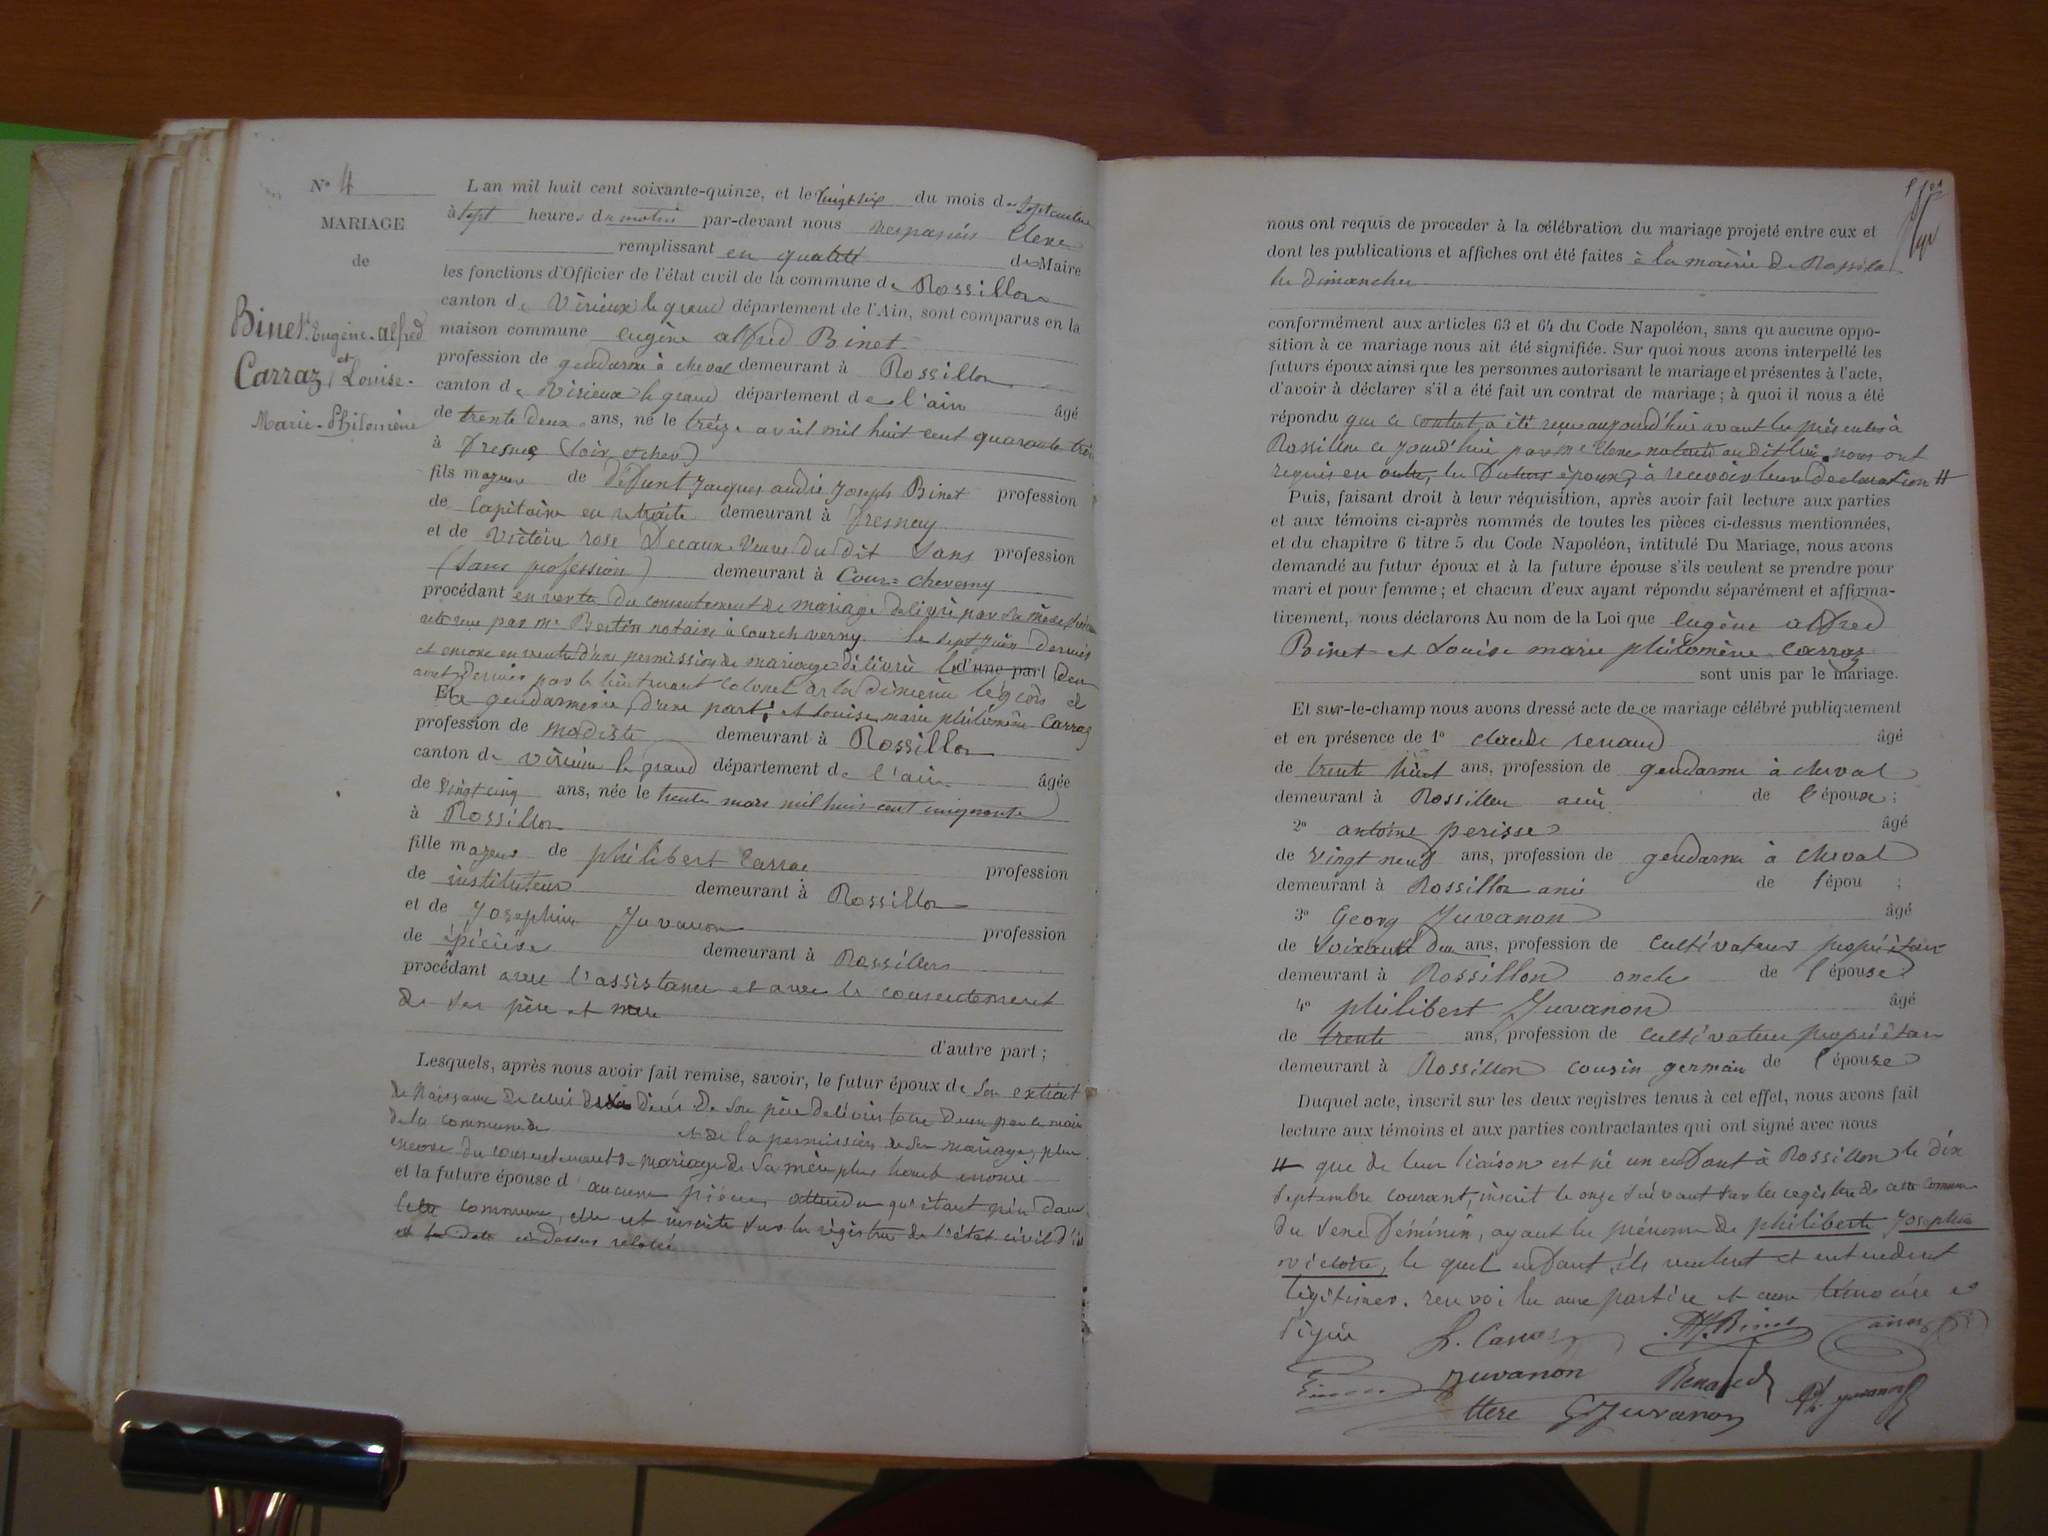 N° 4
MARIAGE
de
Binet Eugène-Alfred
et
Carraz Louise-
Marie-Philomène
L'an mil huit cent soixante-quinze, et le vingt six du mois de septembre
à sept heures du matin par-devant nous
remplissant en qualité de Maire
les fonctions d'Officier de l'état civil de la commune de Rossillon
canton de Virieux le grand département de l'Ain, sont comparus en la
maison commune eugène alfred Binet
profession de gendarme à cheval demeurant à Rossillon
canton de Virieux le grand département de l'ain âgé
de trente deux ans, né le treize avril mil huit cent quarante trois
à fresnes (loir et cher)
fils majeur de défunt Jacques andré Joseph Binet profession
de Capitaine en retraite demeurant à fresnes
et de Victoire rose Decaux veuve du dit sans profession
(sans profession) demeurant à Cour-cheverny
procédant en vertu du consentement de mariage délivré par sa mère
reçu par me Bertin notaire à courcheverny le sept juin dernier
et encore en vertu d'une permission de mariage délivrée le d'une part deux
août dernier par le lieutenant colonel de la dixième légion de
Et gendarmerie, d'une part; et louise marie philomène Carraz
profession de modiste demeurant à Rossillon
canton de virieu le grand département de l'ain âgée
de vingt cinq ans, née le trente mars mil huit cent cinquante
à Rossillon
fille majeure de philibert Carraz profession
de instituteur demeurant à Rossillon
et de Josephine Juvanon profession
de épicière demeurant à Rossillon
procédant avec l'assistance et avec le consentement
de ses père et mère
d'autre part;
Lesquels, après nous avoir fait remise, savoir, le futur époux de son extrait
de Naissance de celui de décès de son père délivrés tous deux par le maire
de la commune de et de la permission de son mariage, plus
encore du consentement de mariage de sa mère plus haut énoncé
et la future épouse d'aucune pièces, attendu qu'étant née dans
cette commune, elle est inscrite sur les registres de l'état civil d'ici
et la date ci dessus relatée
nous ont requis de proceder à la célébration du mariage projeté entre eux et
dont les publications et affiches ont été faites à la mairie de Rossillon
les dimanches
conformément aux articles 63 et 64 du Code Napoléon, sans qu'aucune oppo-
sition à ce mariage nous ait été signifiée. Sur quoi nous avons interpellé les
futurs époux ainsi que les personnes autorisant le mariage et présentes à l'acte,
d'avoir à déclarer s'il a été fait un contrat de mariage; à quoi il nous a été
répondu que ce contrat a été reçu aujourd'hui avant les présentes à
Rossillon ce jourd'hui par me notaire au dit lieu. nous ont
requis en outre, les futurs époux, à recevoir leur declaration #
Puis, faisant droit à leur réquisition, après avoir fait lecture aux parties
et aux témoins ci-après nommés de toutes les pièces ci-dessus mentionnées,
et du chapitre 6 titre 5 du Code Napoléon, intitulé Du Mariage, nous avons
demandé au futur époux et à la future épouse s'ils veulent se prendre pour
mari et pour femme; et chacun d'eux ayant répondu séparément et affirma-
tivement, nous déclarons Au nom de la Loi que eugène alfred
Binet et Louise marie philomène Carraz
sont unis par le mariage.
Et sur-le-champ nous avons dressé acte de ce mariage célébré publiquement
et en présence de 1° claude renaud âgé
de trente huit ans, profession de gendarme à cheval
demeurant à Rossillon ami de l'époux;
2° antoine perisse âgé
de vingt neuf ans, profession de gendarme à cheval
demeurant à Rossillon ami de l'épou ;
3° Georg Juvanon âgé
de soixante deux ans, profession de cultivateur propriétaire
demeurant à Rossillon oncle de l'épouse
4° philibert Juvanon âgé
de trente ans, profession de cultivateur propriétaire
demeurant à Rossillon cousin germain de l'épouse
Duquel acte, inscrit sur les deux registres tenus à cet effet, nous avons fait
lecture aux témoins et aux parties contractantes qui ont signé avec nous
# que de leur liaison est né un enfant à Rossillon le dix
septembre courant, inscrit le onze suivant sur les registres de cette commune
du sexe féminin, ayant les prénoms de philiberte Josephine
victoire, le quel enfant, ils veulent et entendent
légitimer. renvoi lu aux parties et aux témoins et
signé L. Carraz Af. Binet
Juvanon Renaud Ph. Juvanon
G Juvanon